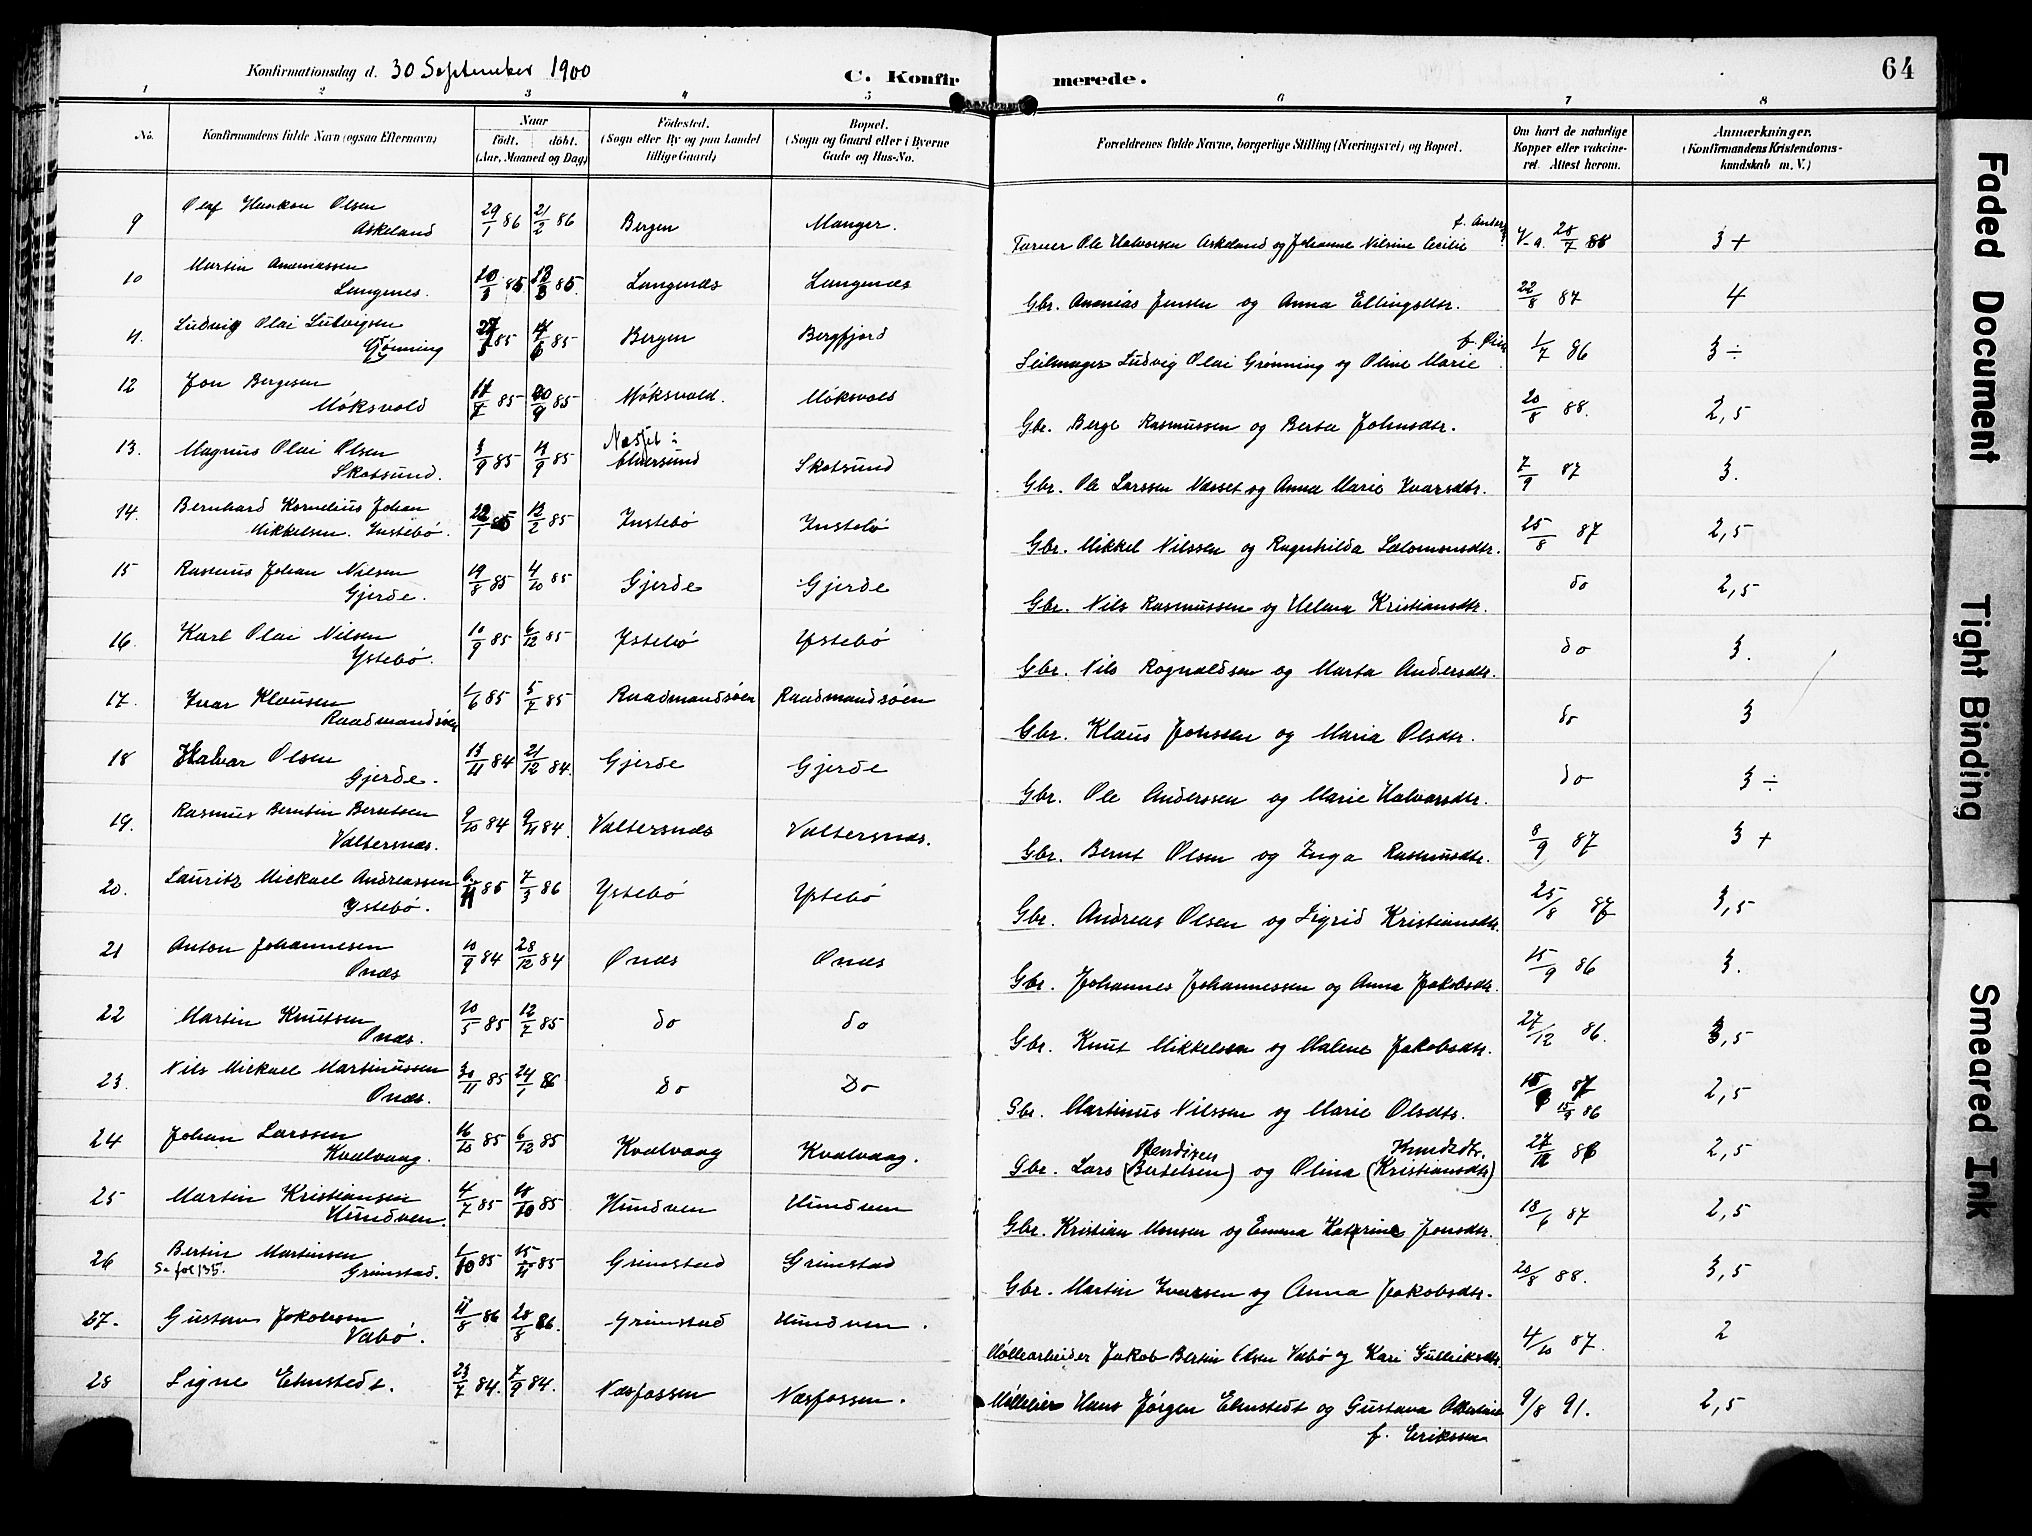 Konfirmationsdag d. 30 September 1900
C. Konfirmerede.
64
1 2 3 4 5 6 7 8
No.
Konfirmandens fulde Navn (ogsaa Efternavn)
Naar
født. døbt.
(Aar, Maaned og Dag)
Fødested.
(Sogn eller By og paa Landet
tillige Gaard)
Bopæl.
(Sogn og Gaard eller i Byerne
Gade og Hus-No.
Forældrenes fulde Navne, borgerlige Stilling (Næringsvei) og Bopæl.
Om havt de naturlige
Kopper eller vakcine-
ret. Attest herom.
Anmærkninger.
(Konfirmandens Kristendoms-
kundskab m. V.)
9 Olaf Haakon Olsen
Askeland 29/1 86 21/2 86 Bergen Manger. Farver Ole Halvorsen Askeland og Johanne Nilsine Cecilie f. Anders 3+
10 Martin Ananiassen
Langenes. Langenæs Langenæs Gbr. Ananias Jensen og Anna Ellingsdtr. 22/8 87 4
11 Ludvig Olai Ludvigsen
Grønning Bergen Bergfjord Seilmager Ludvig Olai Grønning og Oline Marie 1/7 86 3 ÷
12 Jon Bergesen
Møksvold Møksvold. Møksvold Gbr. Berge Rasmussen og Berta Johnsdtr. 20/8 88. 2,5
13. Magnus Olai Olsen
Skotsund. 3/9 85 Næsset i
Alversund Skotsund Gbr. Ole Larssen Næsset og Anna Marie Ivarsdtr. 7/9 87 3.
14. Bernhard Kornelius Johan
Mikkelsen Instebø. Instebø Instebø Gbr. Mikkel Nilssen og Ragnhilda Salomonsdtr. 25/8 87 2,5
15 Rasmus Johan Nilsen
Gjerde. 19/8 85 4/10 85 Gjerde Gjerde Gbr. Nils Rasmussen og Helena Kristiansdtr. do 2,5
16 Karl Olai Nilsen
Ystebø. 10/9 85 6/12 85 Ystebø Ystebø Gbr. Nils Rognaldsen og Marta Andersdtr. do 3.
17. Ivar Klausen
Raadmandsøen 1/6 85 5/7 85 Raadmandsøen Raadmandsøen Gbr. Klaus Johssen og Maria Olsdtr. do 3
18 Halvar Olsen
Gjerde. 13/11 84 21/12 84. Gjerde Gjerde Gbr. Ole Anderssen og Marie Halvarsdtr. do 3 ÷
19. Rasmus Berntin Berntsen
Valtersnæs. 9/10 84 9/11 84. Valtersnæs Valtersnæs. Gbr. Bernt Olsen og Inga Rasmusdtr. 8/9 87 3 +
20. Lauritz Mickael Andreassen
Ystebø. 6/11 85 7/3 86 Ystebø Ystebø Gbr. Andreas Olsen og Sigrid Kristiansdtr. 25/8 87 3,5
21 Anton Johannesen
Onæs 10/9 84 28/12 84 Onæs Onæs Gbr. Johannes Johannessen og Anna Jakobsdtr. 15/9 86 3.
22 Martin Knutsen
Onæs. 10/5 85 12/7 85 do do Gbr. Knut Mikkelsen og Malene Jakobsdtr. 27/12 86. 3,5
23. Nils Mickael Martinussen
Onæs. 30/11 85 24/1 86 Do Do Gbr. Martinus Nilssen og Marie Olsdtr. 2,5
24 Johan Larssen
Kvalvaag. 16/10 85 6/12 85 Kvalvaag Kvalvaag. Gbr. Lars (Bertelsen) og Olina (Kristiansdtr) Knudsdtr. 2,5
25 Martin Kristiansen
Hundven. 4/7 85 18/10 85 Hundven Hundven Gbr. Kristian Monsen og Emma Katrine Jonsdtr. 18/6 87 2,5
26 Bertin Martinsen
Se fol 135. Grimstad. 1/10 85 15/11 85 Grimstad Grimstad Gbr. Martin Ivarsen og Anna Jakobsdtr. 20/8 88. 3,5
27. Gustav Jakobsen
Vabø. 11/8 86 Grimstad Hundven. Møllearbeider Jakob Bertin Olsen Vabø og Kari Gulleiksdtr. 4/10 87. 2
28 Signe Ehnstedt. 23/7 84. 7/9 84. Næsfossen Næsfossen. Møller Hans Jørgen Ehnstedt og Gustava
f. Eriksen 9/8 91. 2,5
Faded Document
Tight Binding
Smeared Ink